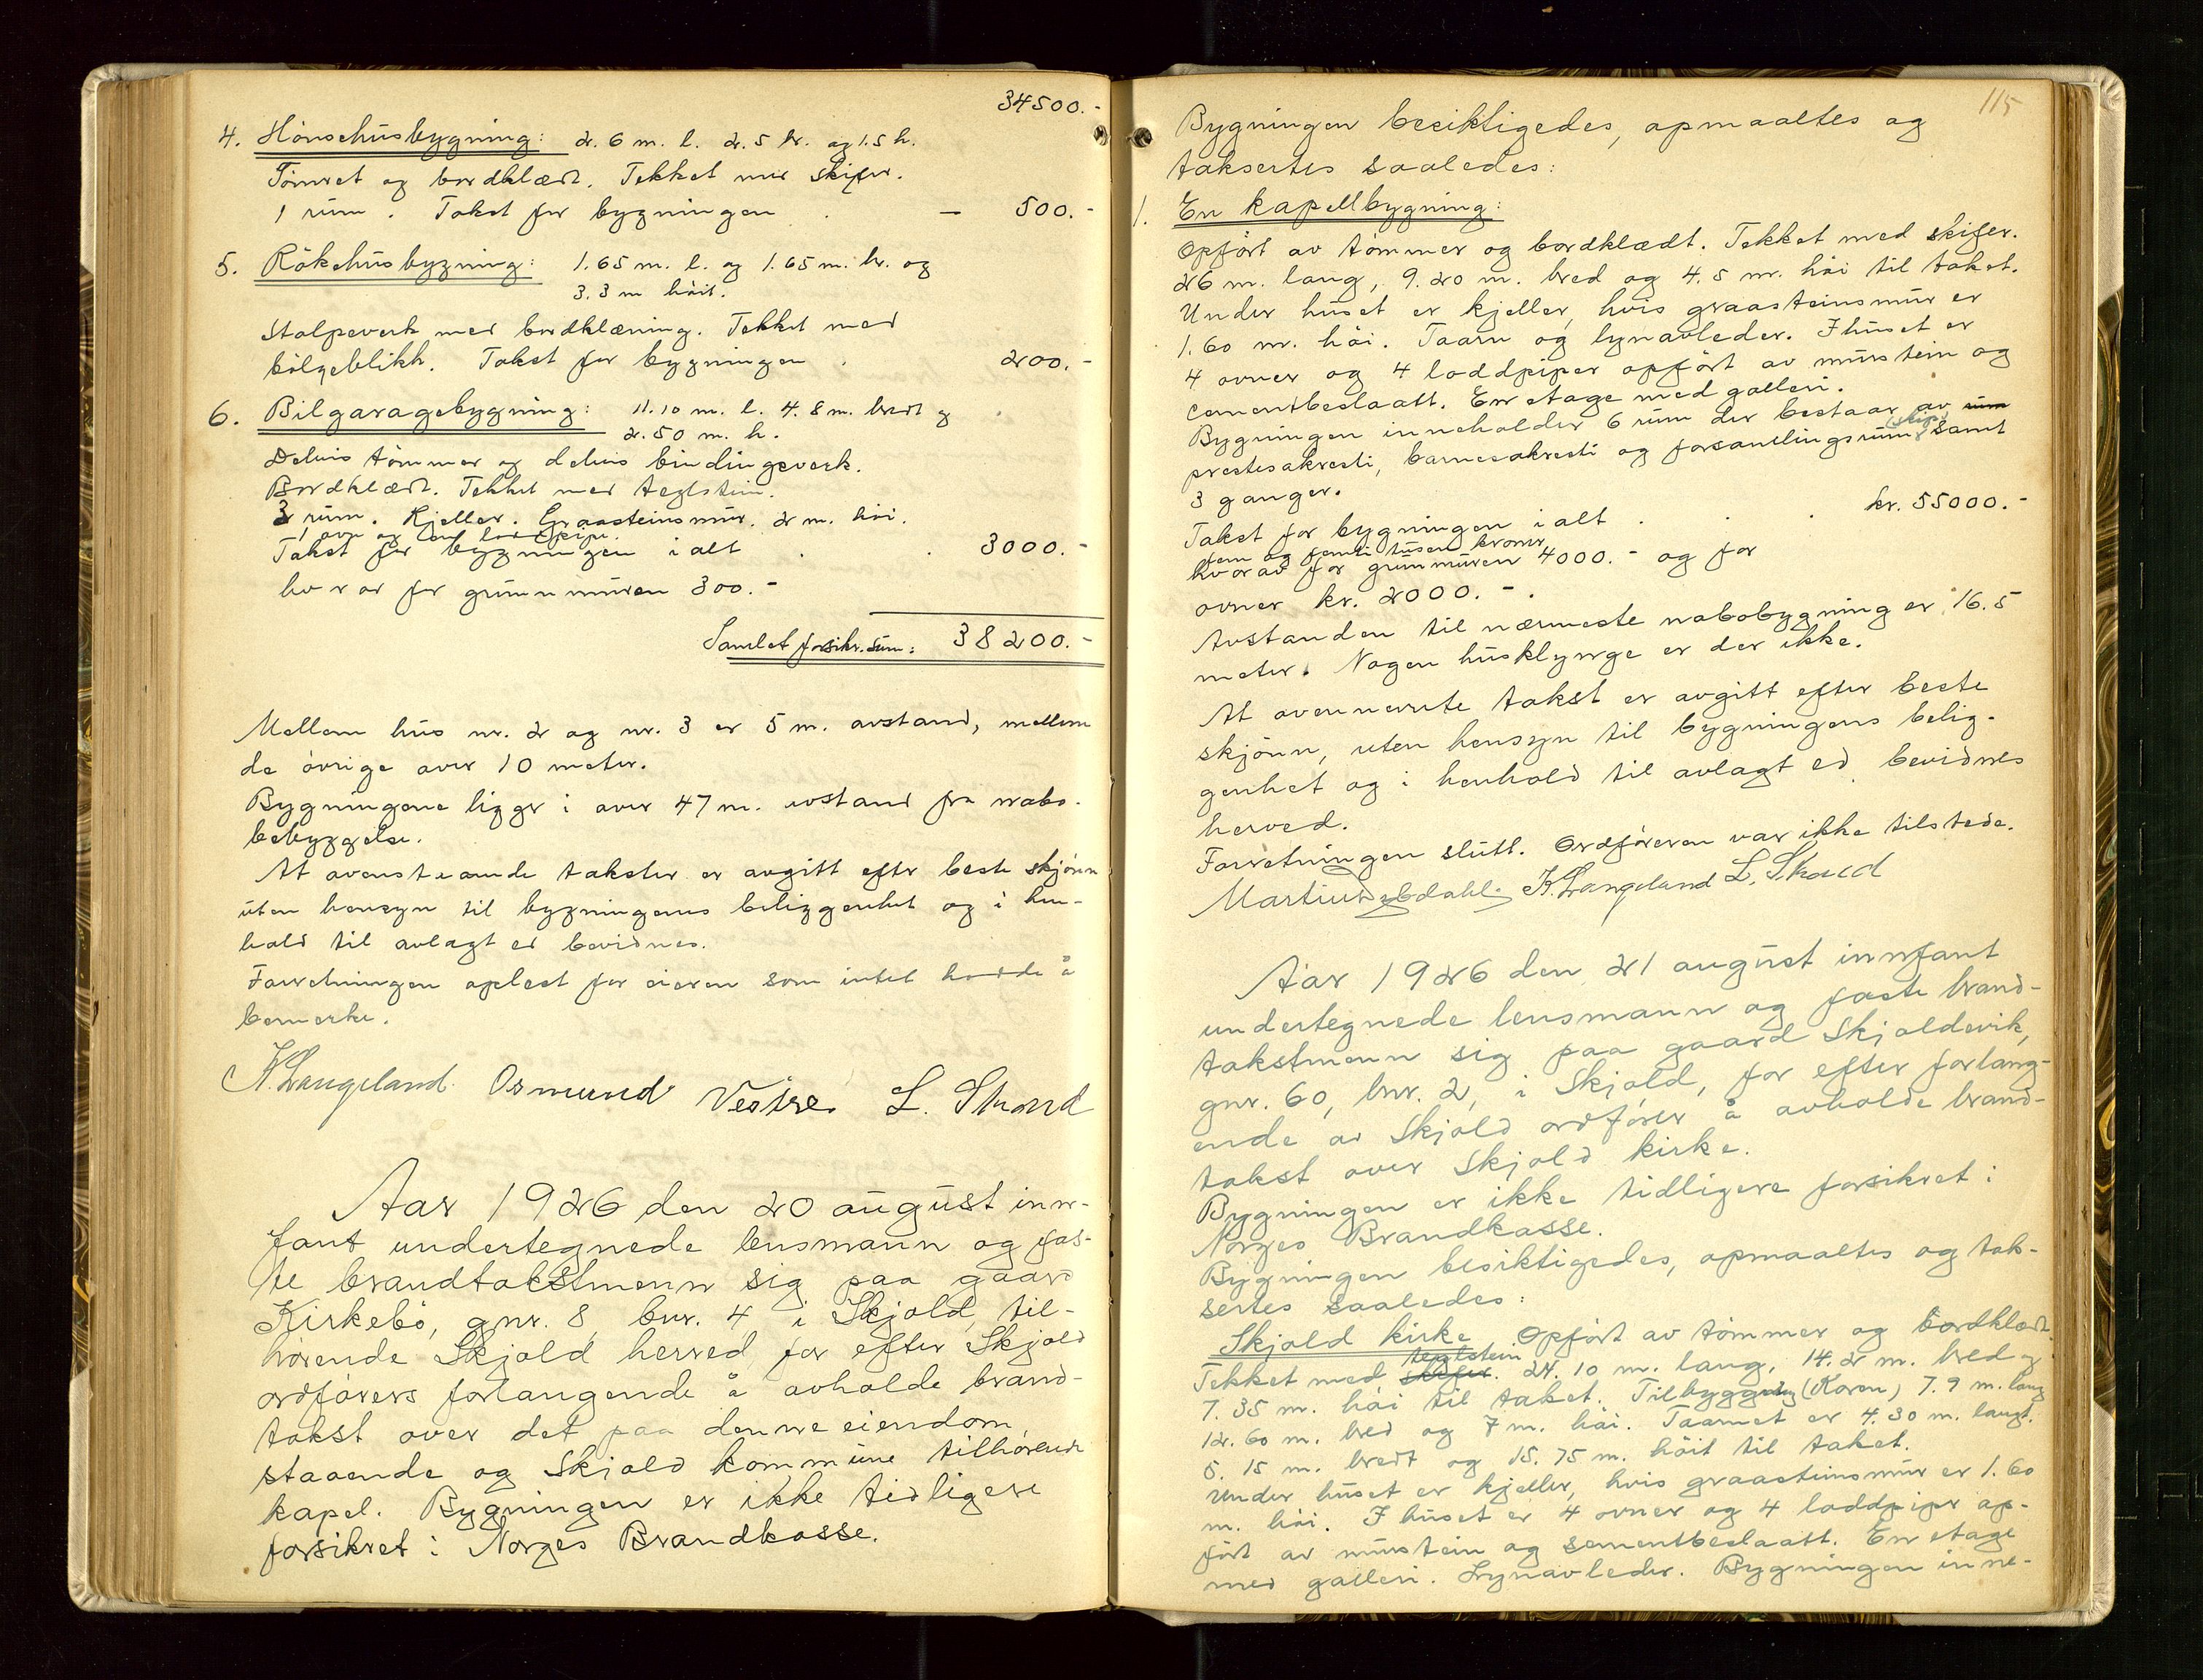 34500.-
4. Hönsehusbygning: 2.6 m. l. 2.5 br. og 1.5 h.
Tömret og bordklædt. Tekket med skifer.
1 rum. Takst for bygningen . — 500.-
5. Rökehusbygning: 1.65 m. l. og 1.65 m. br. og
3.3 m höit.
Stolpeverk med bordklædning. Tekket med
bölgeblikk. Takst for bygningen . 200.-
6. Bilgaragebygning: 11.10 m. l. 4.8 m. bredt og
2.50 m. h.
Delvis tömmer og delvis bindingsverk.
Bordklædt. Tekket med teglstein.
3 rum. Kjeller. Graasteinsmur. 2 m. höi.
1 ovn og en loddpipe.
Takst for bygningen ialt . . 3000.-
hvorav for grunnmuren 300.-
Samlet forsikr. sum: 38200.-
Mellem hus nr. 2 og nr. 3 er 5 m. avstand, mellem
de övrige over 10 meter.
Bygningene ligger i over 47 m. avstand fra nabo-
bebyggelse.
At ovenstaaende takster er avgitt efter beste skjönn
uten hensyn til bygningenes beliggenhet og i hen-
hold til avlagt ed bevidnes.
Forretningen oplest for eieren som intet hadde å
bemerke.
K. Langeland. Osmund Vestre. L. Skaand
Aar 1926 den 20 august inn-
fant undertegnede lensmann og fas-
te brandtakstmenn sig paa gaard
Kirkebö, gnr. 8 bnr. 4 i Skjold, til-
hörende Skjold herred for efter Skjold
ordförers forlangende å avholde brand-
takst over det paa denne eiendom
staaende og Skjold kommune tilhörende
kapel. Bygningen er ikke tidligere
forsikret i Norges Brandkasse.
115
Bygningen besiktigedes, opmaaltes og
taksertes saaledes:
1. En kapellbygning:
Opfört av tömmer og bordklædt. Tekket med skifer.
26 m. lang, 9.20 m. bred og 4.5 m. höi til taket.
Under huset er kjeller, hvis graasteinsmur er
1.60 m. höi. Taarn og lynavleder. I huset er
4 ovner og 4 loddpiper opfört av murstein og
cementbeslaatt. En etage med galleri.
Bygningen inneholder 6 rum der bestaar av rum
prestesakresti, barnesakresti og forsamlingsrum (skip) samt
3 ganger.
Takst for bygningen ialt . . . kr. 55000.-
fem og femti tusen kroner
hvorav for grunmuren 4000.- og for
ovner kr. 2000.-.
Avstanden til nærmeste nabobygning er 16.5
meter. Nogen husklynge er der ikke.
At ovennevnte takst er avgitt efter beste
skjönn, uten hensyn til bygningens belig-
genhet og i henhold til avlagt ed bevidnes
herved.
Forretningen slutt. Ordföreren var ikke tilstede.
K. Langeland L. Skaand
Aar 1926 den 21 august innfant
undertegnede lensmann og faste brand-
takstmenn sig paa gaard Skjoldevik,
gnr. 60, bnr. 2, i Skjold, for efter forlang-
ende av Skjold ordförer å avholde brand-
takst over Skjold kirke.
Bygningen er ikke tidligere forsikret i
Norges Brandkasse.
Bygningen besiktigedes, opmaaltes og tak-
sertes saaledes:
Skjold kirke. Opfört av tömmer og bordklædt.
Tekket med skifer teglstein. 24.10 m. lang, 14.2 m. bred og
7.35 m. höi til taket. Tilbygging (Koren) 7.9 m. lang
12.60 m. bred og 7 m. höi. Taarnet er 4.30 m. langt.
5.15 m. bredt og 15.75 m. höit til taket.
Under huset er kjeller, hvis graasteinsmur er 1.60
m. höi. I huset er 4 ovner og 4 loddpiper op-
fört av murstein og sementbeslaatt. En etage
med galleri. Lynavleder. Bygningen inne-